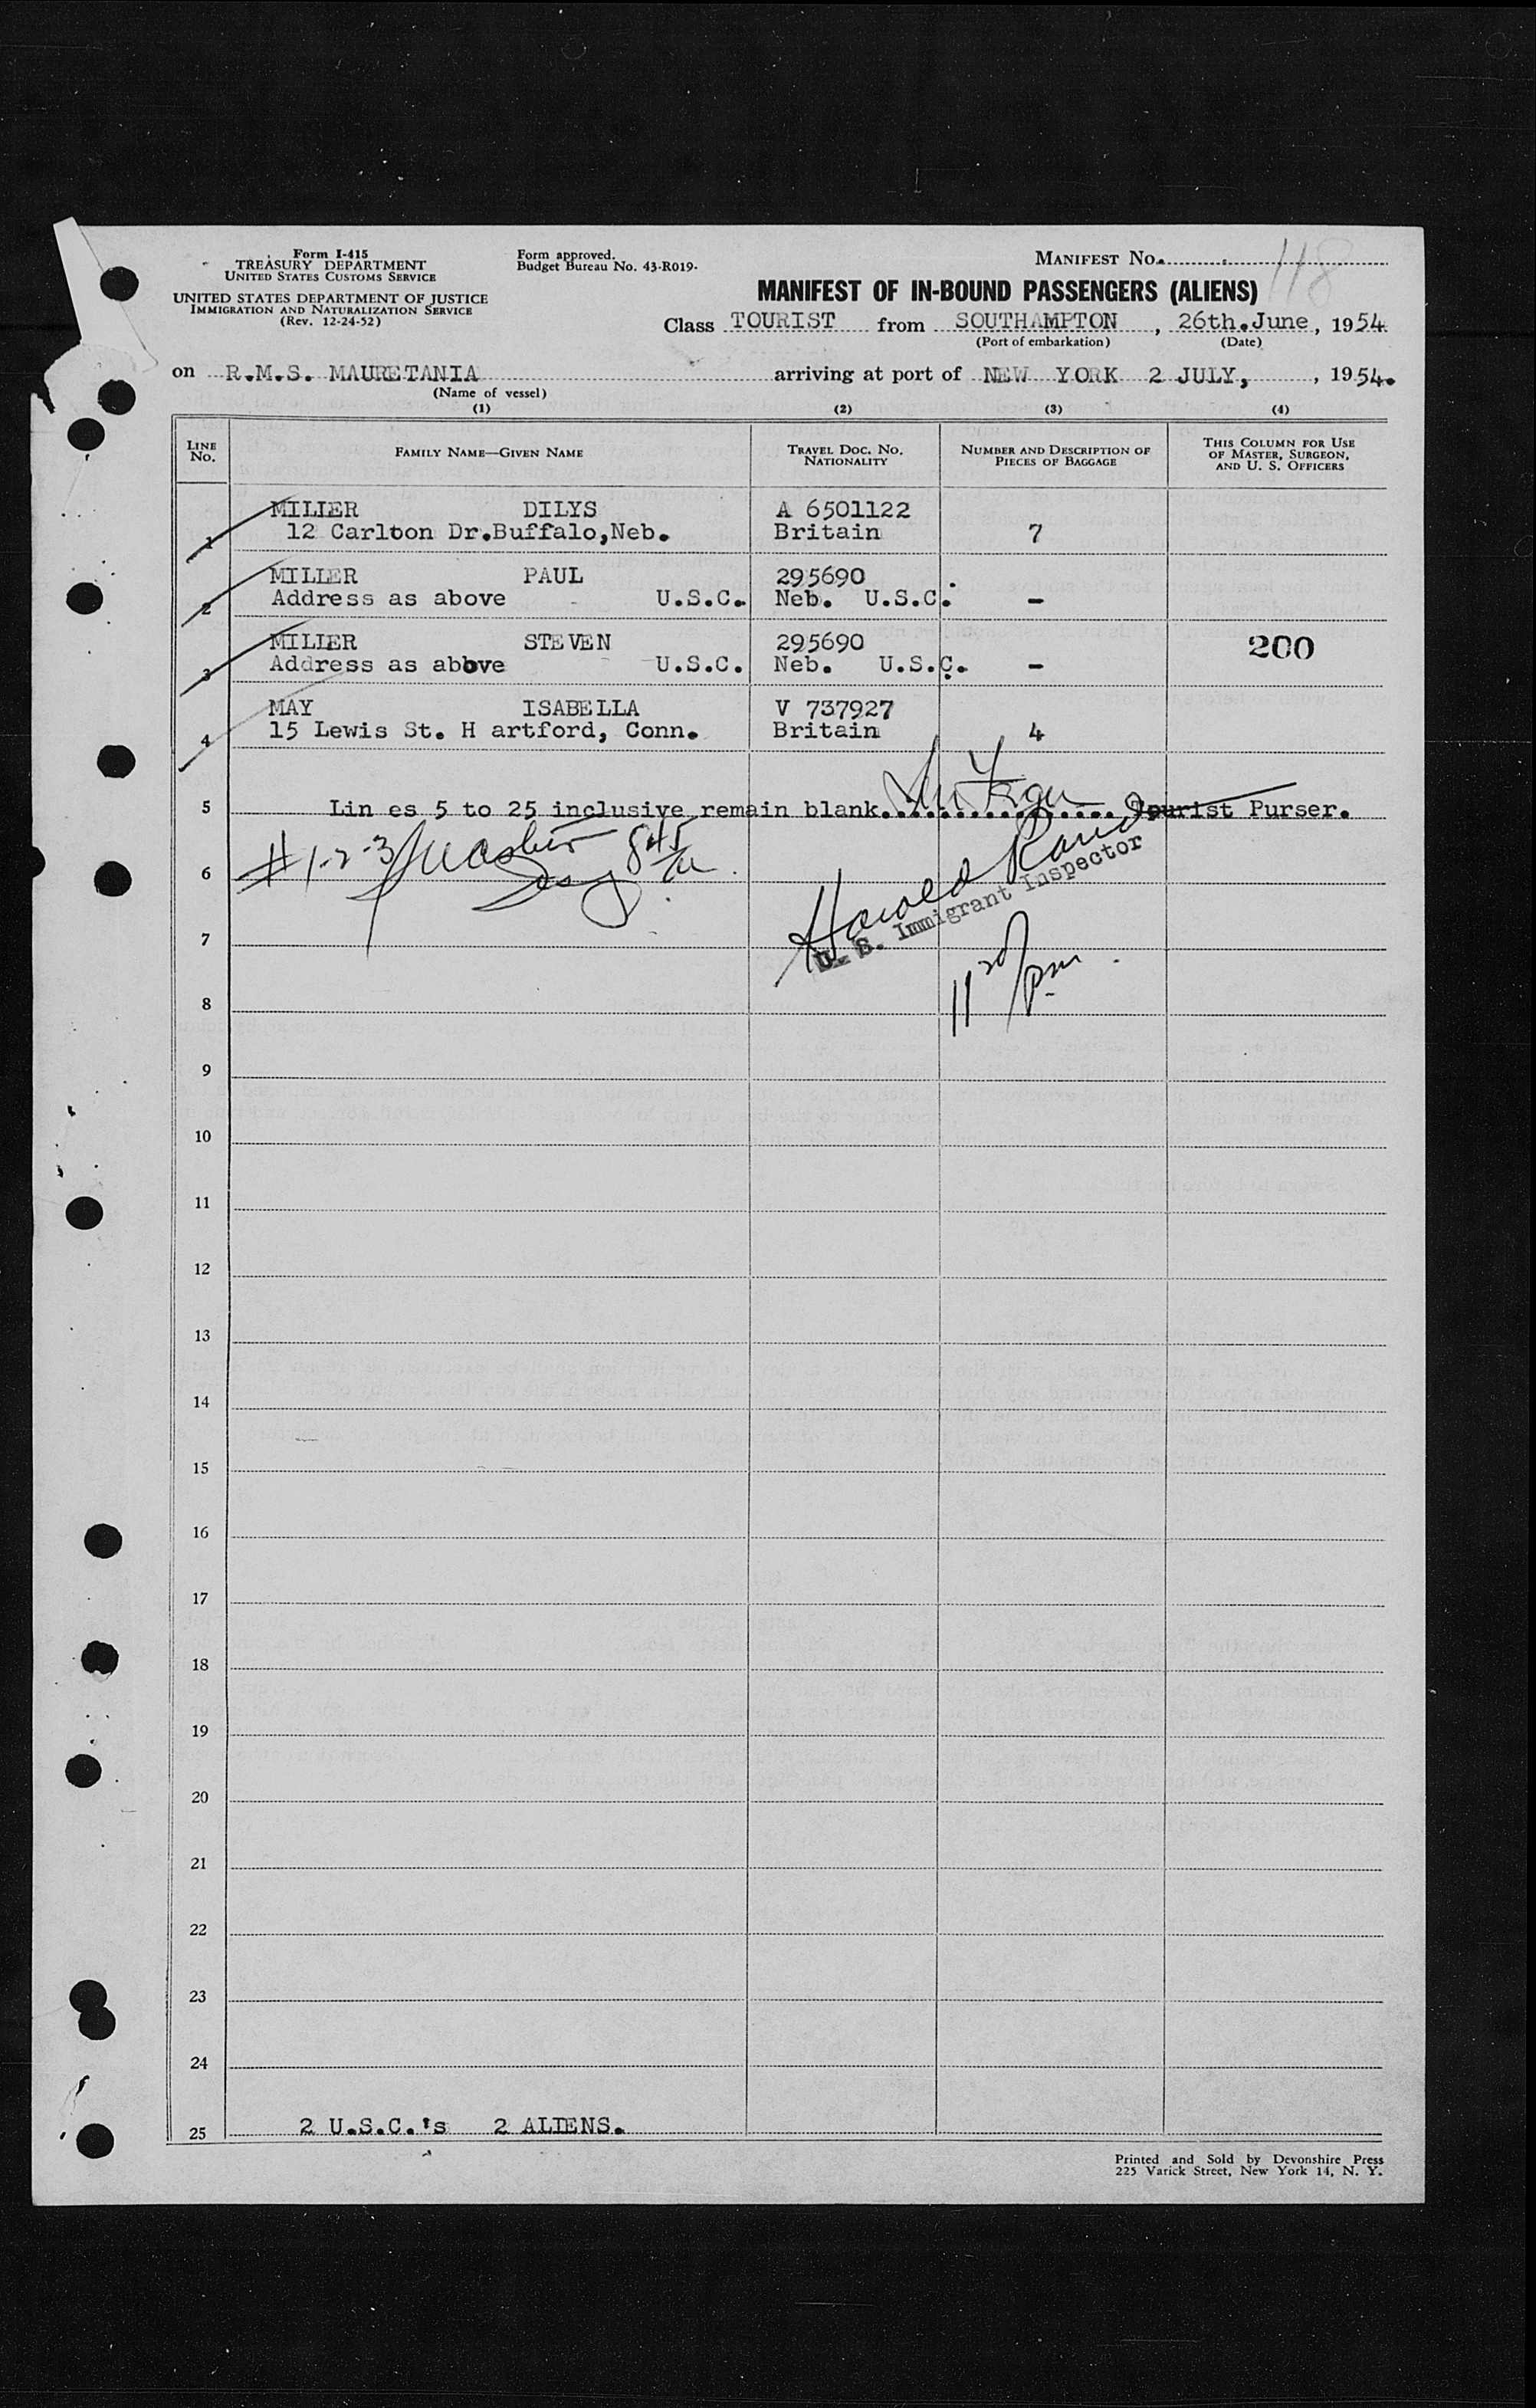 Form I-415
TREASURY DEPARTMENT
UNITED STATES CUSTOMS SERVICE
UNITED STATES DEPARTMENT OF JUSTICE
IMMIGRATION AND NATURALIZATION SERVICE
(Rev. 12-24-52)
Form approved.
Budget Bureau No. 43-R019.
MANIFEST No. 118
MANIFEST OF IN-BOUND PASSENGERS (ALIENS)
Class TOURIST from SOUTHAMPTON, 26th.June, 1954
(Port of embarkation) (Date)
on R.M.S. MAURETANIA arriving at port of NEW YORK 2 JULY, , 1954.
(Name of vessel)
(1) (2) (3) (4)
LINE No. FAMILY NAME—GIVEN NAME TRAVEL DOC. NO. NATIONALITY NUMBER AND DESCRIPTION OF PIECES OF BAGGAGE THIS COLUMN FOR USE OF MASTER, SURGEON, AND U. S. OFFICERS
MILLER DILYS A 6501122
1 12 Carlton Dr.Buffalo,Neb. Britain 7
MILLER PAUL 295690
2 Address as above U.S.C. Neb. U.S.C. -
MILLER STEVEN 295690 200
3 Address as above U.S.C. Neb. U.S.C. -
MAY ISABELLA V 737927
4 15 Lewis St. H artford, Conn. Britain 4
5 Lin es 5 to 25 inclusive remain blank................ Tourist Purser.
6 #1-2-3 845
Harold
U. S. Immigrant Inspector
7
11 20 pm
8
9
10
11
12
13
14
15
16
17
18
19
20
21
22
23
24
25 2 U.S.C.'s 2 ALIENS.
Printed and Sold by Devonshire Press
225 Varick Street, New York 14, N. Y.